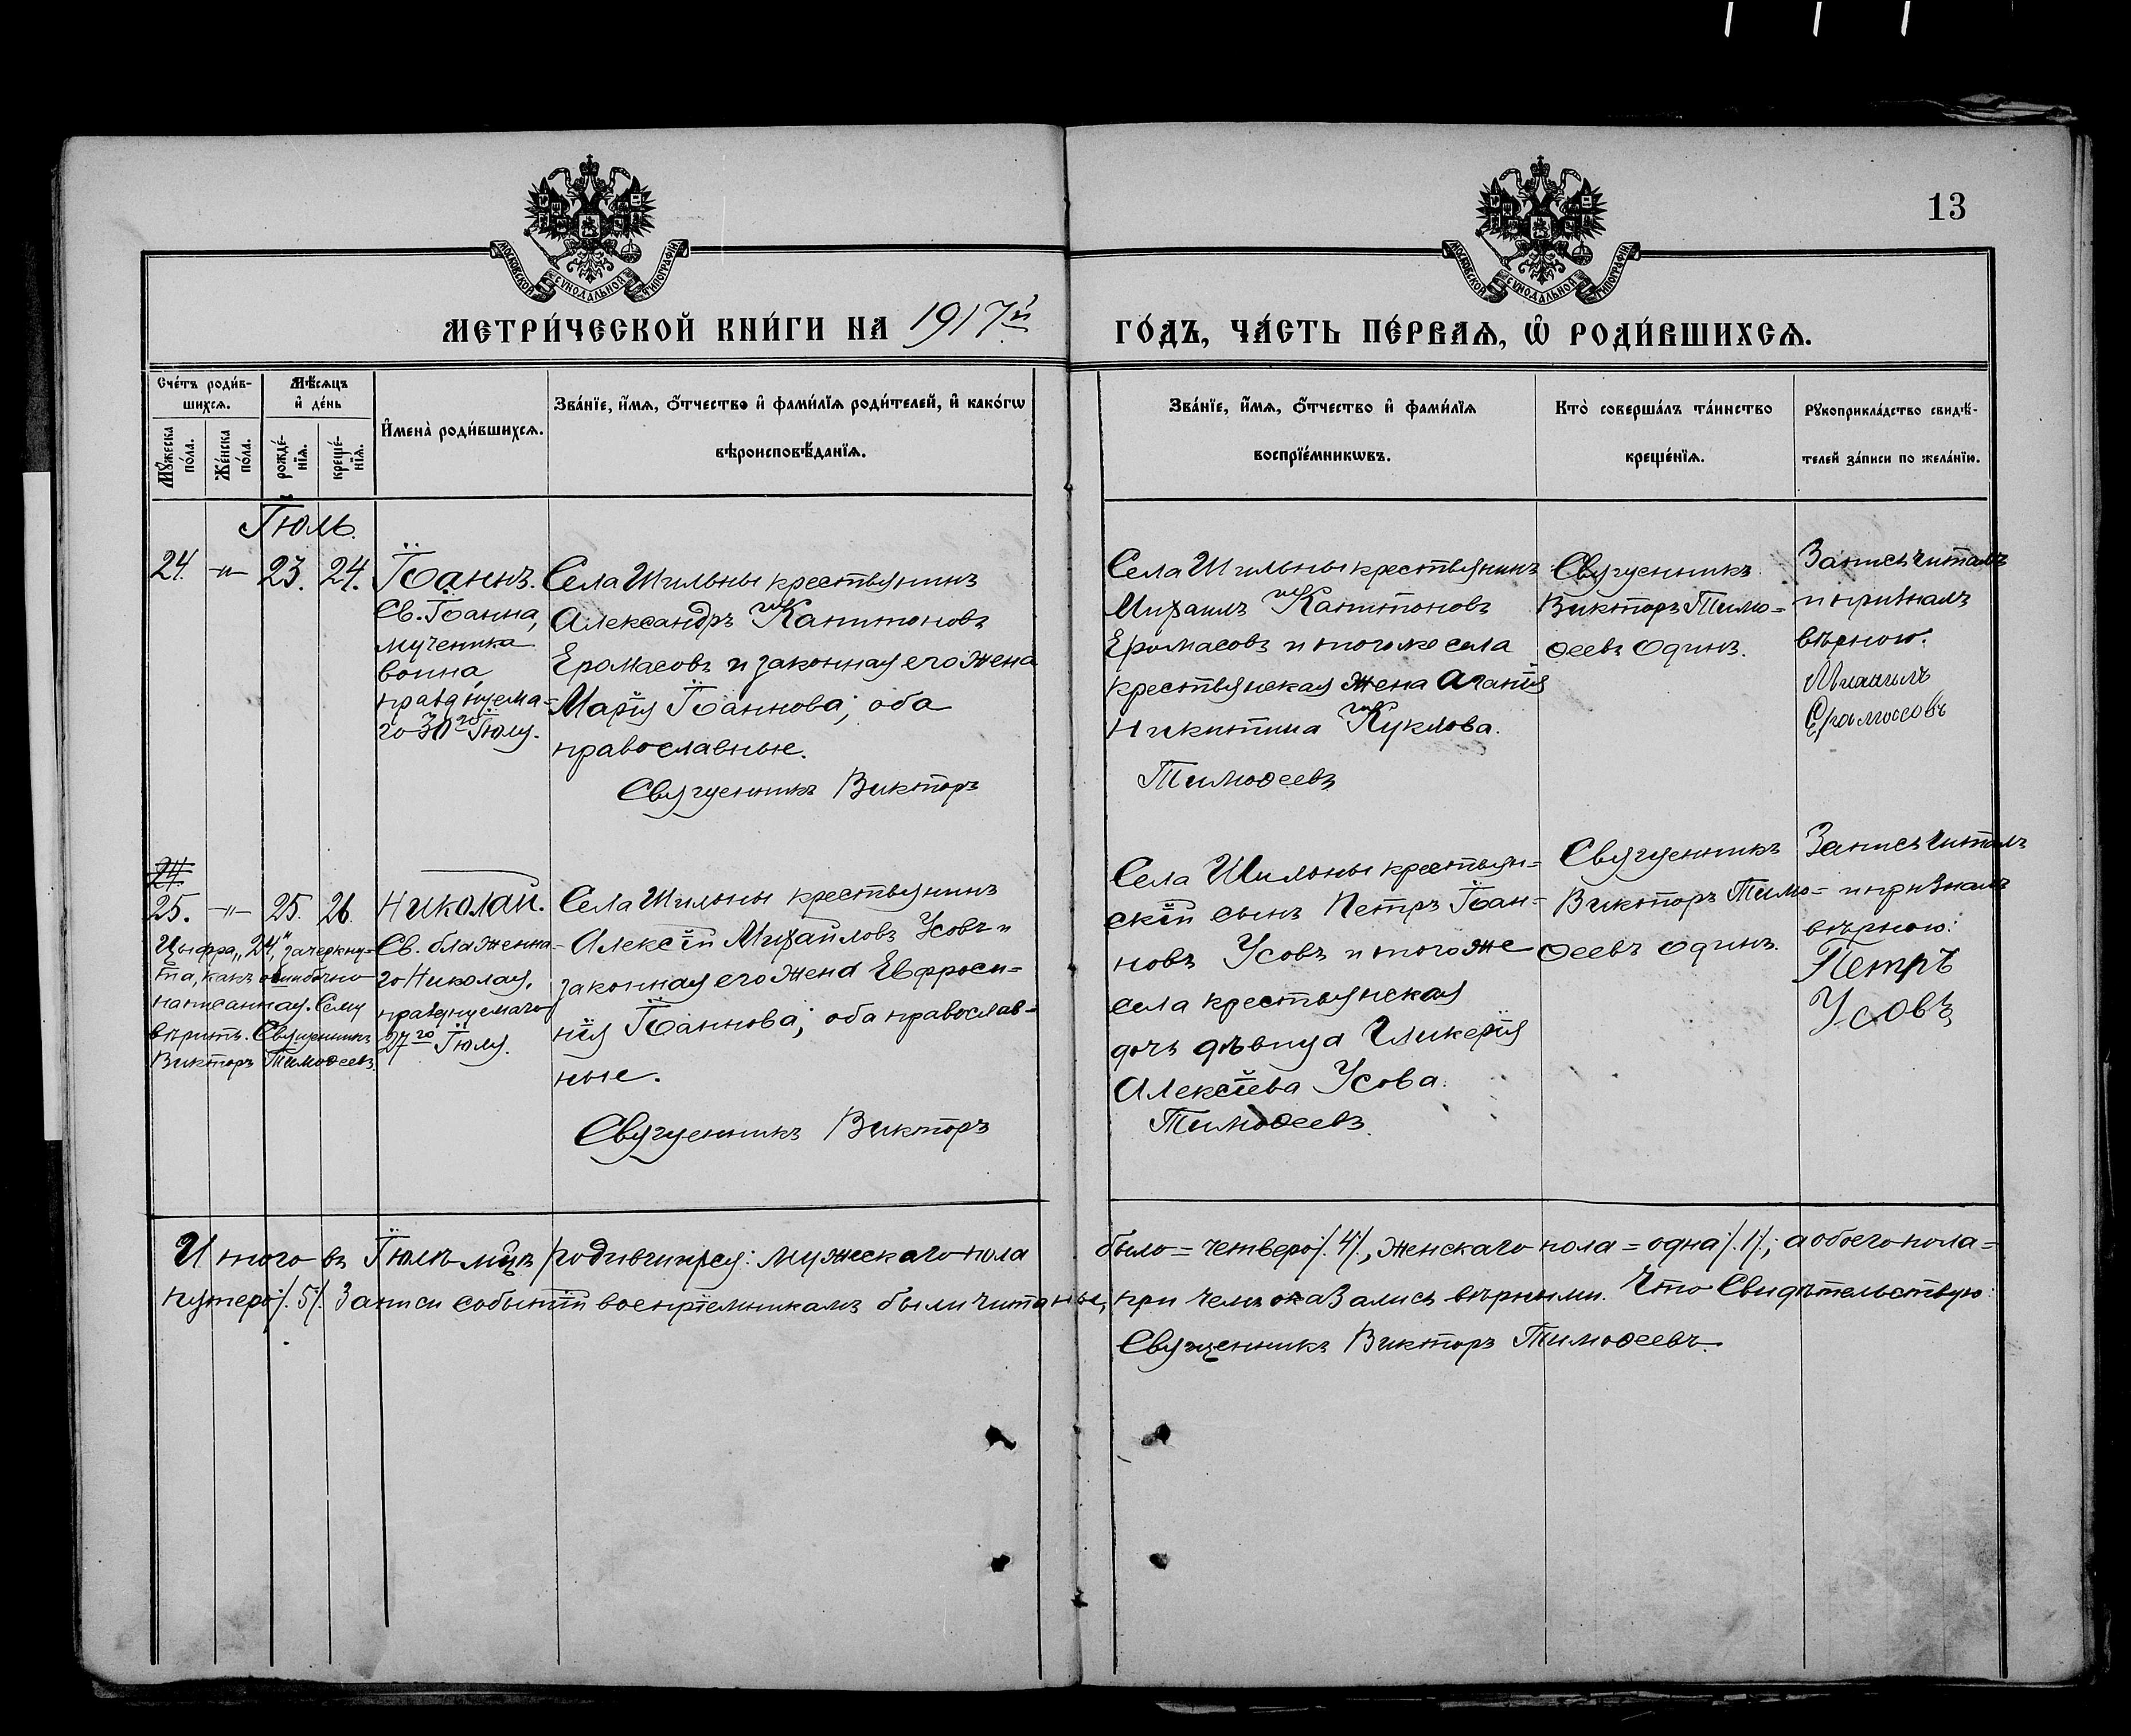 13
МОСКОВСКОЙ СѴНОДАЛЬНОЙ ТИПОГРАФІИ
МОСКОВСКОЙ СѴНОДАЛЬНОЙ ТИПОГРАФІИ
МЕТРИ́ЧЕСКОЙ КНИ́ГИ НА 1917й
ГО́ДЪ, ЧА́СТЬ ПЕ́РВАѦ, Ѽ РОДИ́ВШИХСѦ.
Сче́тъ роди́в-
шихсѧ.
Мѣ́сѧцъ
и҆ де́нь
Мꙋ́жеска
по́ла.
Же́нска
по́ла.
рожде́-
нїѧ.
креще́-
нїѧ.
И҆мена̀ роди́вшихсѧ.
Зва́нїе, и҆́мѧ, ѻ҆́тчество и҆ фами́лїѧ роди́телей, и҆ како́гѡ
вѣроисповѣ́данїѧ.
Зва́нїе, и҆́мѧ, ѻ҆́тчество и҆ фами́лїѧ
воспрїе́мникѡвъ.
Кто̀ соверша́лъ та́инство
креще́нїѧ.
Рꙋкоприкла́дство свидѣ́-
телей за́писи по жела́нїю.
Іюль.
24. -"- 23. 24.
Іоаннъ.
Св. Іоанна,
мученика
воина,
празднуема-
го 30го Іюля.
Села Шильны крестьянинъ
Александръ Капитоновъ
Ермасовъ и законная его жена
Марія Іоаннова; оба
православные.
Священникъ Викторъ
Села Шильны крестьянинъ
Михаилъ Капитоновъ
Ермасовъ и того же села
крестьянская жена Агапія
Никитина Куклова.
Тимоѳеевъ
Священникъ
Викторъ Тимо=
ѳеевъ одинъ.
Запись читалъ
и призналъ
вѣрною.
Михаилъ
24.
25. -"- 25. 26.
Цыфра „24," зачеркну-
та, какъ ошибочно
написанная. Сему
вѣрить. Священникъ
Викторъ Тимоѳеевъ.
Николай.
Св. блаженна-
го Николая,
празднуемаго
27го Іюля.
Села Шильны крестьянинъ
Алексій Михайловъ Усовъ и
законная его жена Евфроси=
нія Іоаннова; оба православ=
ные.
Священникъ Викторъ
Села Шильны крестьян=
скій сынъ Петръ Іоан=
новъ Усовъ и того же
села крестьянская
дочь дѣвица Гликерія
Алексіева Усова.
Тимоѳеевъ.
Священникъ
Викторъ Тимо=
ѳеевъ одинъ.
Запись читалъ
и призналъ
вѣрною:
Петръ
Усовъ
Итого въ Іюлѣ мцѣ родившихся: мужескаго пола было = четверо /.4/., женскаго пола = одна /.1/.; а обоего пола =
пятеро /.5/. Записи событій воспріемникамъ были читанные, при чемъ оказались вѣрными. Что свидѣтельствую:
Священникъ Викторъ Тимоѳеевъ.